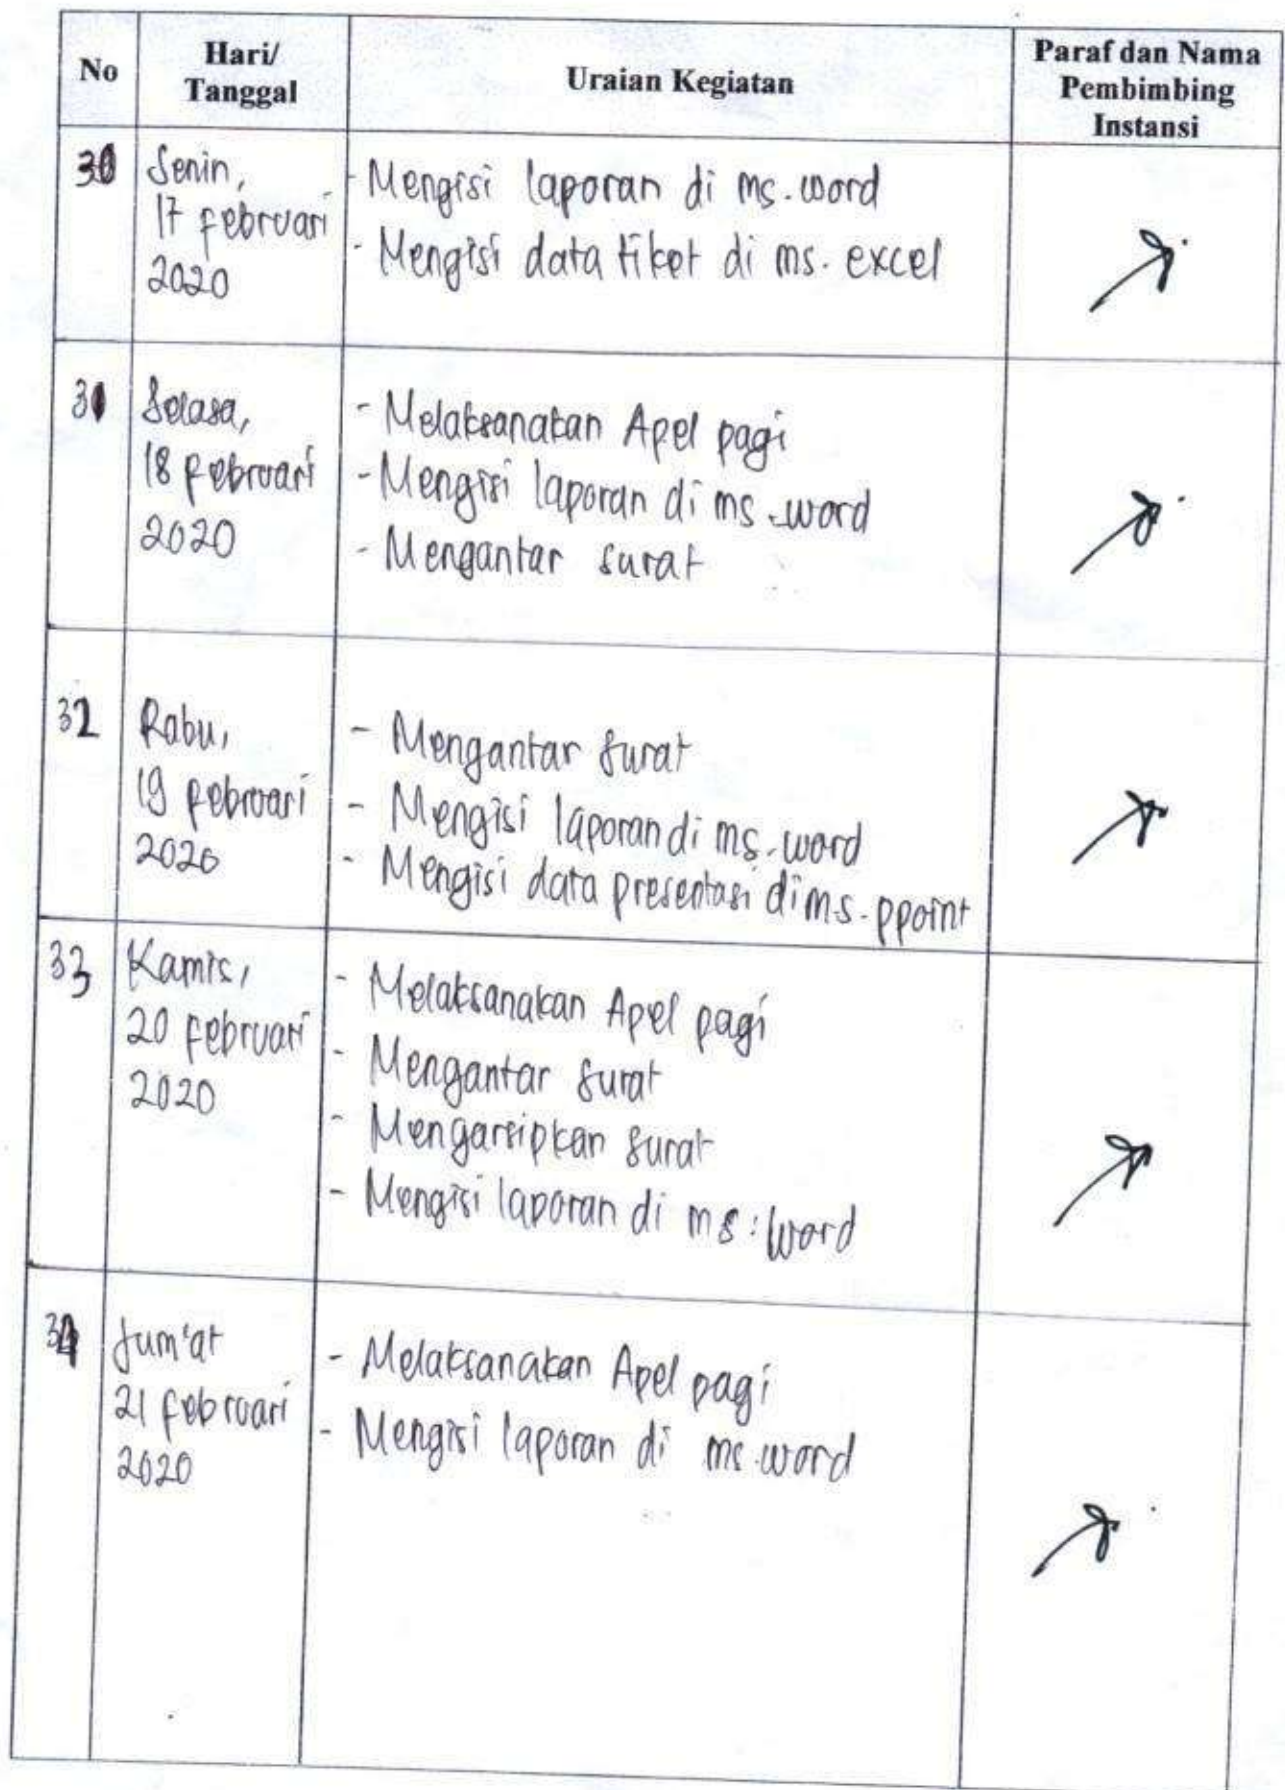 No
Hari/
Tanggal
Uraian Kegiatan
Paraf dan Nama
Pembimbing
Instansi
30
Senin,
17 februari
2020
- Mengisi laporan di ms.word
- Mengisi data tiket di ms. excel
31
Selasa,
18 februari
2020
- Melaksanakan Apel pagi
- Mengisi laporan di ms.word
- Mengantar surat
32
Rabu,
19 februari
2020
- Mengantar surat
- Mengisi laporan di ms.word
- Mengisi data presentasi di ms. ppoint
33
Kamis,
20 februari
2020
- Melaksanakan Apel pagi
- Mengantar surat
- Mengarsipkan surat
- Mengisi laporan di ms: word
34
Jum'at
21 februari
2020
- Melaksanakan Apel pagi
- Mengisi laporan di ms.word